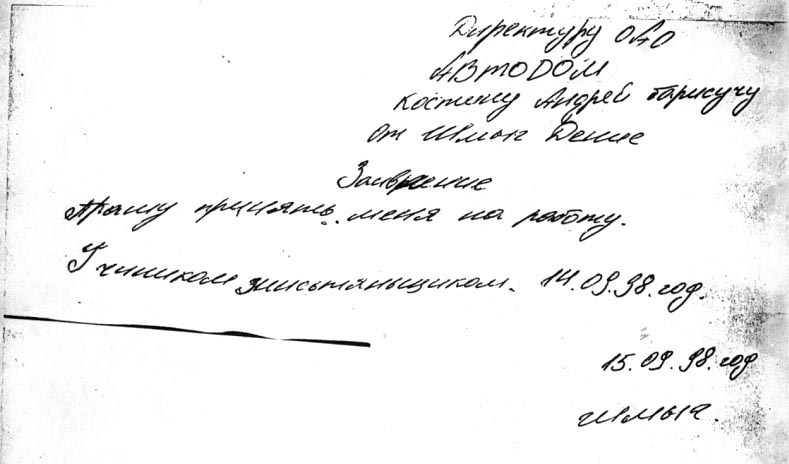 Директуру ОАО
АВТОДОМ
Костину Андрей Барисучу
от Шмык Денис
Заивление
Прашу принять меня на работу.
Учиником жистяньщиком. 14.09.98.год.
15.09.98.год
Шмык.